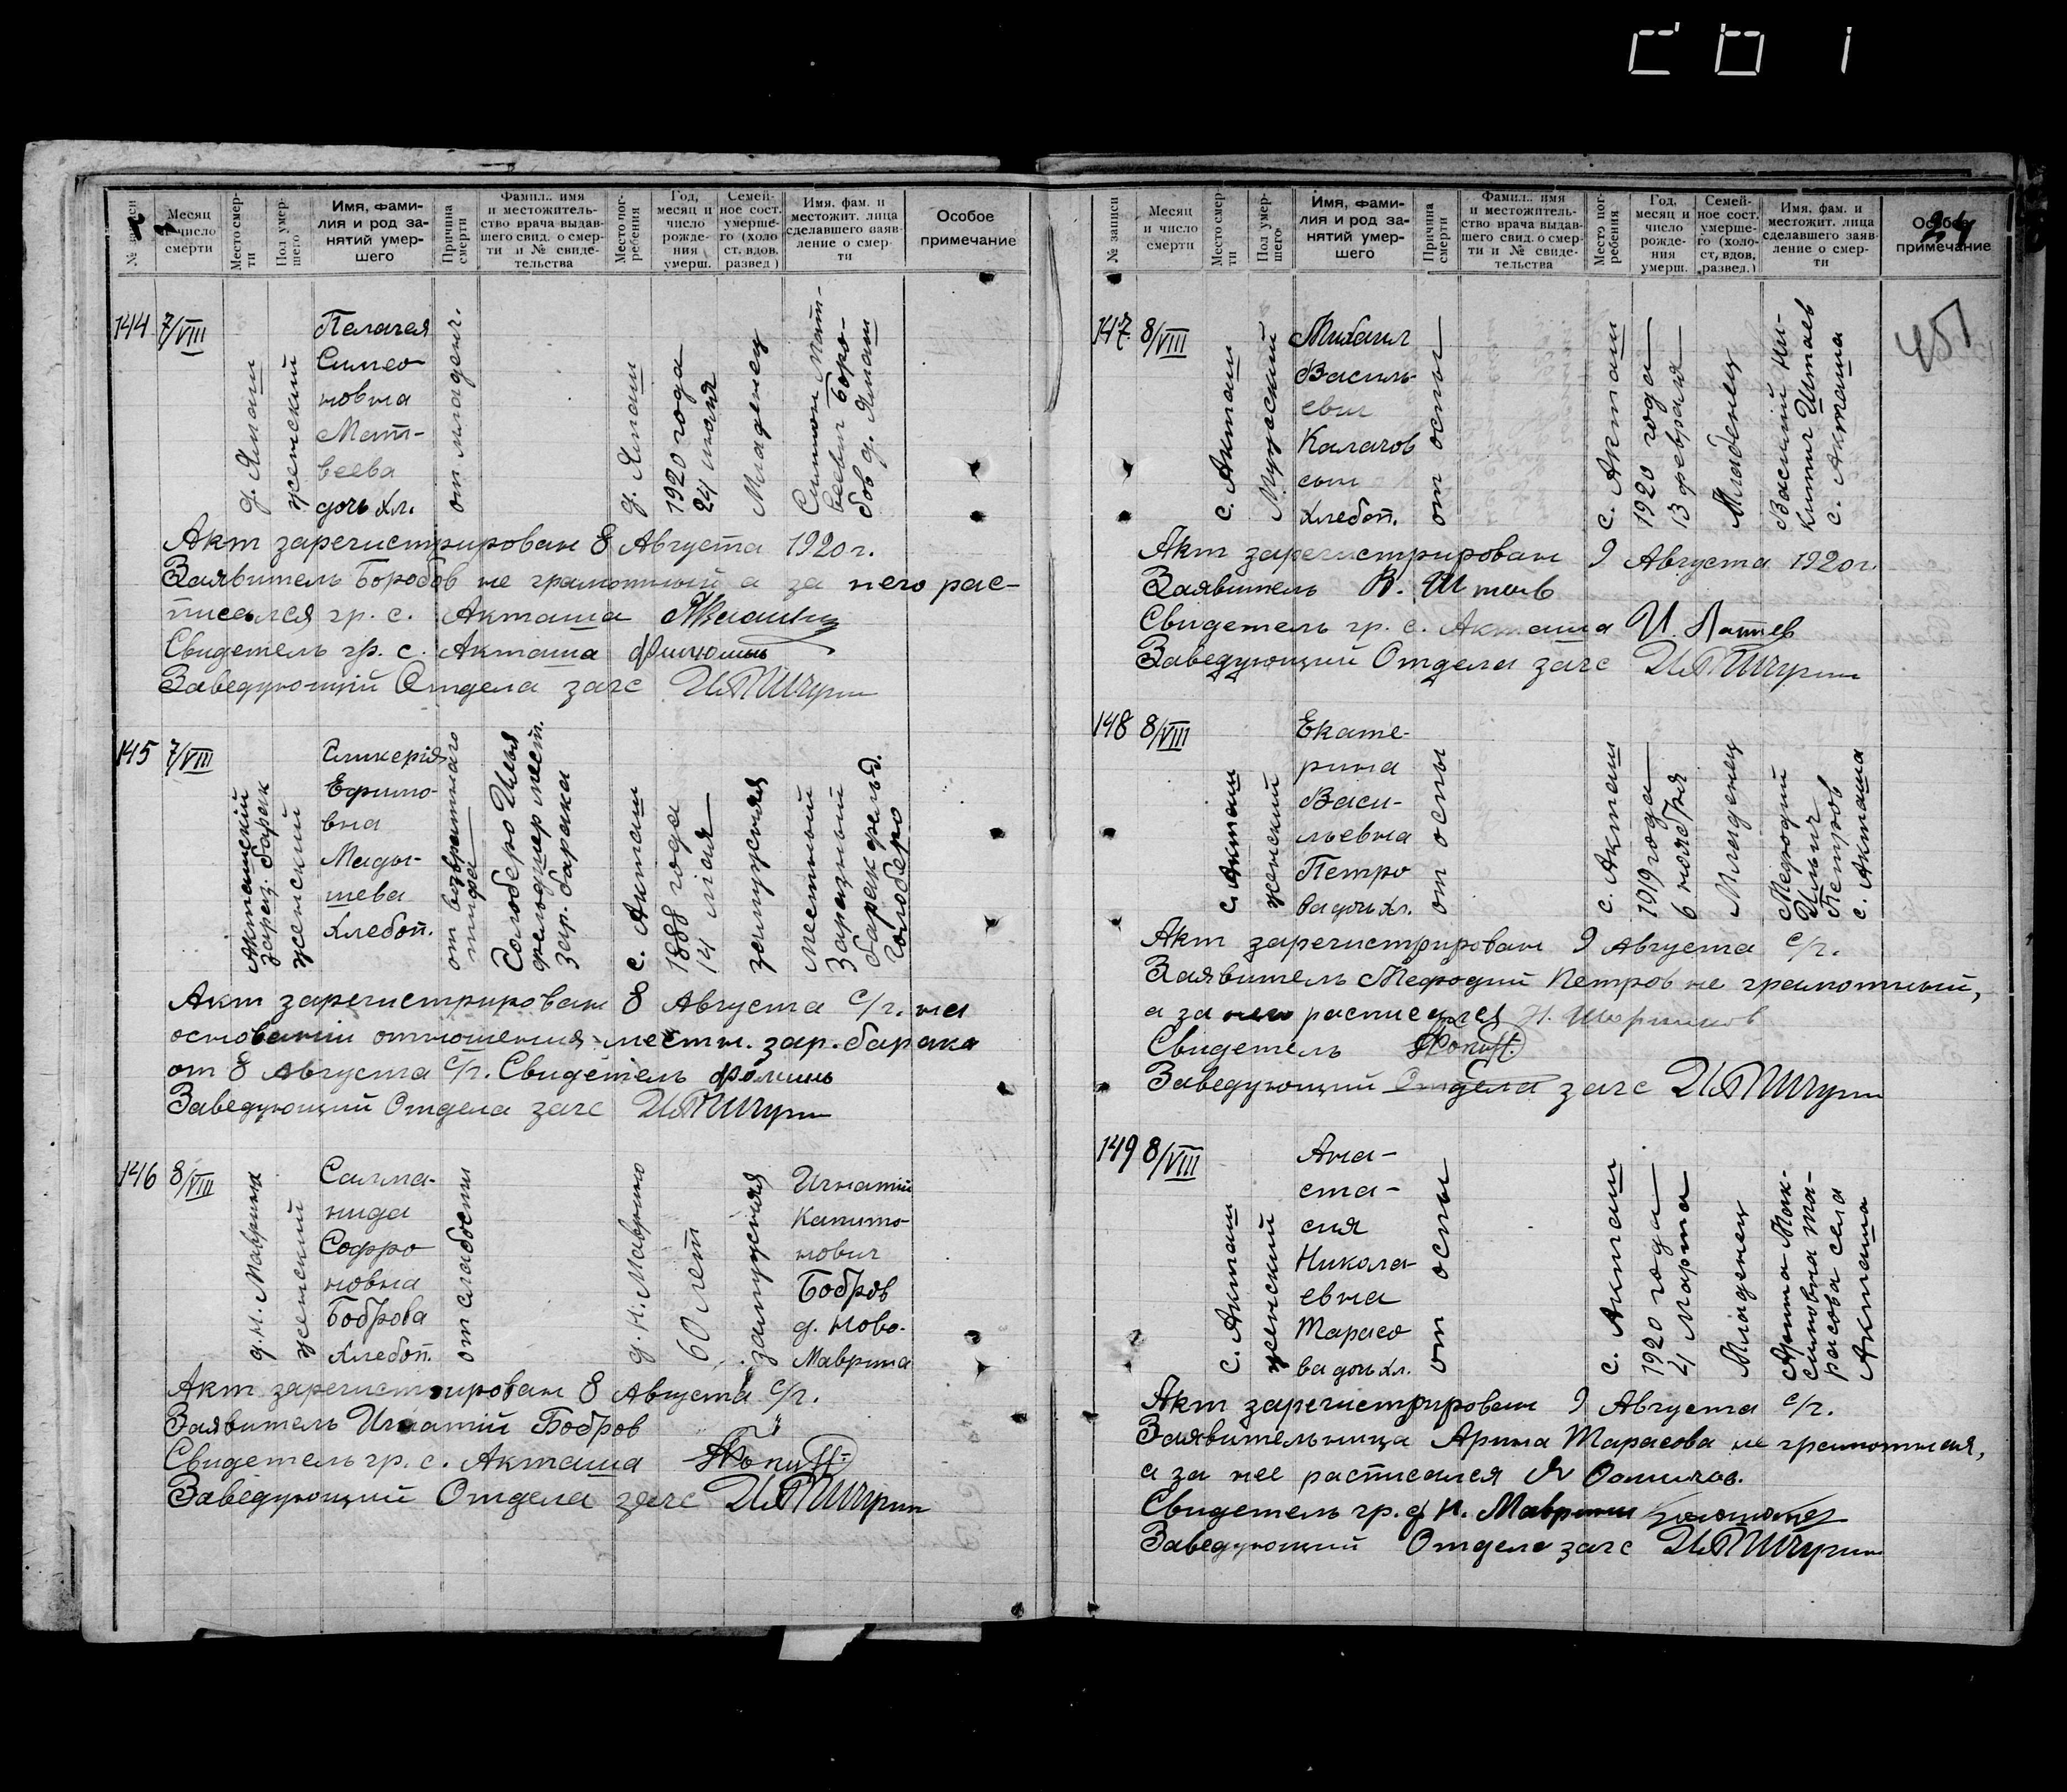 № записи
Месяц и число смерти
Место смер-ти
Пол умер-шего
Имя, фами-лия и род за-нятий умер-шего
Причина смерти
Фамил., имя и местожитель-ство врача выдав-шего свид. о смер-ти и № свиде-тельства
Место пог-ребения
Год, месяц и число рожде-ния умерш.
Семей-ное сост. умерше-го (холо ст. вдов. развед.)
Имя, фам. и местожит. лица сделавшего заяв-ление о смер-ти
Особое примечание
144
7/VIII
женский
Пелагея
Симео-
новна
Мат-
веева
дочь хл.
от младенч.
1920 года
24 июля
Младенец
Симион Мат-
веевич Боро-
бов
Акт зарегистрирован 8 Августа 1920 г.
Заявитель Боробов не грамотный а за него рас-
писался гр. с. Акташа
Свидетель гр. с. Акташа
Заведующий Отдела загс
145
7/VIII
Акташский
зараз. барак
женский
Гликерия
Ефимо-
вна
Мады-
шева
Хлебоп.
от возвратного
тифа
Голоберо Илья
фельдшер мест.
зар. барака
с. Акташ
1888 года
14 мая
замужняя
местный
заразный
барак фельд.
Голоберо
Акт зарегистрирован 8 Августа с/г. на
основании отношения местн. зар. барака
от 8 Августа с/г. Свидетель Фомин
Заведующий Отдела загс
146
8/VIII
д. Н. Маврина
женский
Солма-
нида
Софро
новна
Боброва
Хлебоп.
от слабости
д. Н. Маврино
60 лет
замужняя
Игнатий
Капито-
нович
Бобров
д. Ново-
Маврина
Акт зарегистрирован 8 Августа с/г.
Заявитель Игнатий Бобров
Свидетель гр. с. Акташа
Заведующий Отдела загс
№ записи
Месяц и число смерти
Место смер-ти
Пол умер-шего
Имя, фами-лия и род за-нятий умер-шего
Причина смерти
Фамил., имя и местожитель-ство врача выдав-шего свид. о смер-ти и № свиде-тельства
Место пог-ребения
Год, месяц и число рожде-ния умерш.
Семей-ное сост. умерше-го (холо-ст, вдов, развед.)
Имя, фам. и местожит. лица сделавшего заяв-ление о смер-ти
Особое примечание
147
8/VIII
с. Акташ
Мужской
Михаил
Василь-
евич
Калачов
сын
Хлебоп.
от оспы
с. Акташ
1920 года
13 февраля
Младенец
Василий Ни-
китич Итаев
с. Акташа
451
Акт зарегистрирован 9 Августа 1920 г.
Заявитель В.
Свидетель гр. с. Акташа И. Лаптев
Заведующий Отдела загс
148
8/VIII
с. Акташ
женский
Екате-
рина
Васи-
льевна
Петро
ва дочь хл.
от оспы
с. Акташ
1919 года
6 ноября
Младенец
Мефодий
Ильич
Петров
с. Акташа
Акт зарегистрирован 9 Августа с/г.
Заявитель Мефодий Петров не грамотный,
а за него расписался
Свидетель
Заведующий Отдела загс
149
8/VIII
с. Акташ
женский
Ана-
ста-
сия
Никола-
евна
Тарасо
ва дочь хл.
от оспы
с. Акташ
1920 года
4 Марта
Младенец
Арина Мак-
симовна Та-
расова села
Акташа
Акт зарегистрирован 9 Августа с/г.
Заявительница Арина Тарасова не грамотная,
а за нее расписался
Свидетель гр. д. Н. Маврина
Заведующий Отдела загс